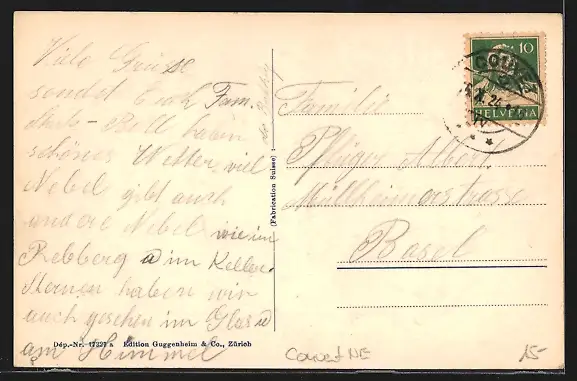 Viele Grüsse
sendet Euch Fam.
Stub-Boll haben
schönes Wetter, viel
Nebel gibt auch
andere Nebel wie im
Rebberg im Keller.
Sternen haben wir
auch gesehen im Glas u
am Himmel
Familie
Pflüger Albert
Müllheimerstrasse
Basel
10
COUVET
24
HELVETIA
(Fabrication Suisse)
Dép.-Nr. 17327 a Edition Guggenheim & Co., Zürich
Couvet NE
15-